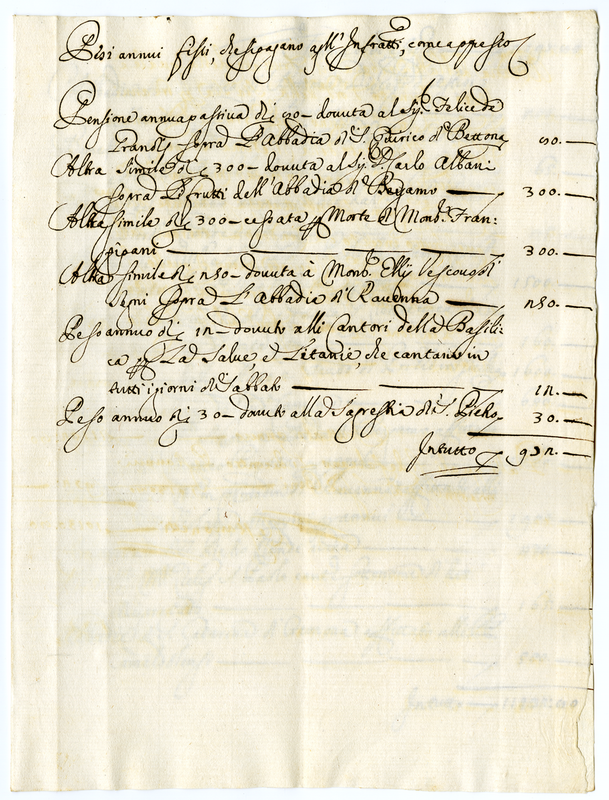 Pesi annui fissi, che si pagano agl'Infratti, come appresso
Pensione annua passiva di dovuta al Sig.r Felice de
sopra l'Abbadia di S. Quirico di Bettona
Altra simile di 300 — dovuta al Sig.r D. Carlo Albani
sopra li frutti dell'Abbadia di Bergamo — 300. —
Altra simile di 300 — cessata per Morte di Mons.r Fran:
gipani — 300. —
Altra simile di 250 — dovuta à Mons.r Ellij Vescovo di
sopra l'Abbadia di Ravenna — 250. —
Peso annuo di 12 — dovuto alli Cantori della Basili:
ca per La Salve, e Letanie, che cantano in
tutti i giorni di Sabbato — 12. —
Peso annuo di 30 — dovuto alla Sagrestia di S. Pietro 30. —
In tutto